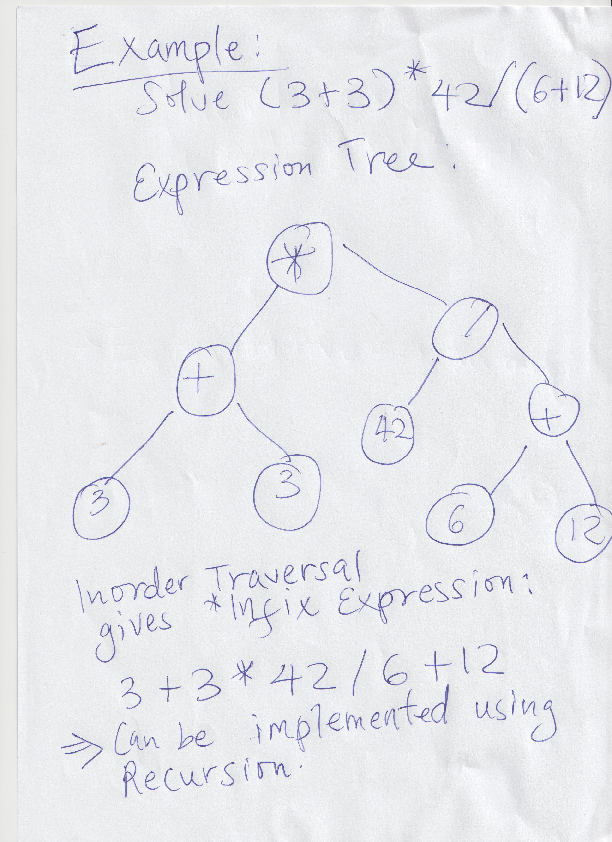 Example:
Solve (3+3)*42/(6+12)
Expression Tree:
*
/
+
42
+
3
3
6
12
Inorder Traversal
gives *Infix Expression:
3+3*42/6+12
⇒ Can be implemented using
Recursion.